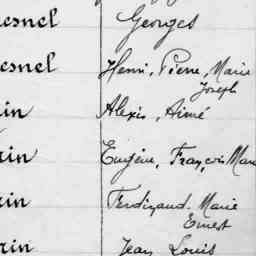 esnel Georges
esnel Henri, Pierre, Marie
Joseph
in Alexis, Aimé
rin Eugène, François Marie
rin Ferdinand Marie
Ernest
rin Jean Louis